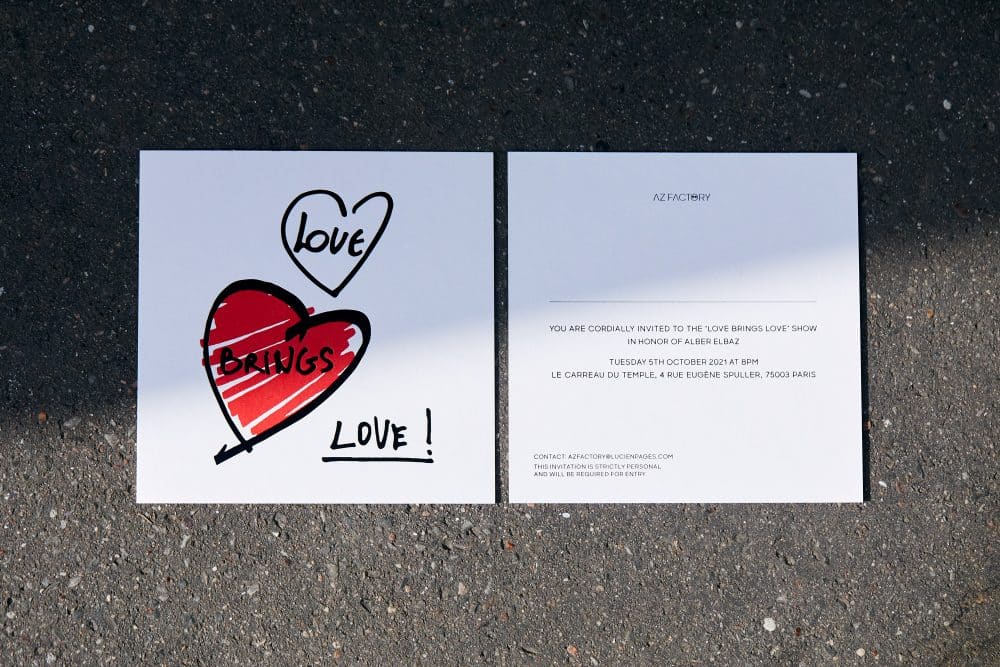 LOVE
BRINGS
LOVE!
AZ FACTORY
YOU ARE CORDIALLY INVITED TO THE "LOVE BRINGS LOVE" SHOW
IN HONOR OF ALBER ELBAZ
TUESDAY 5TH OCTOBER 2021 AT 8PM
LE CARREAU DU TEMPLE, 4 RUE EUGÈNE SPULLER, 75003 PARIS
CONTACT: AZFACTORY@LUCIENPAGES.COM
THIS INVITATION IS STRICTLY PERSONAL
AND WILL BE REQUIRED FOR ENTRY